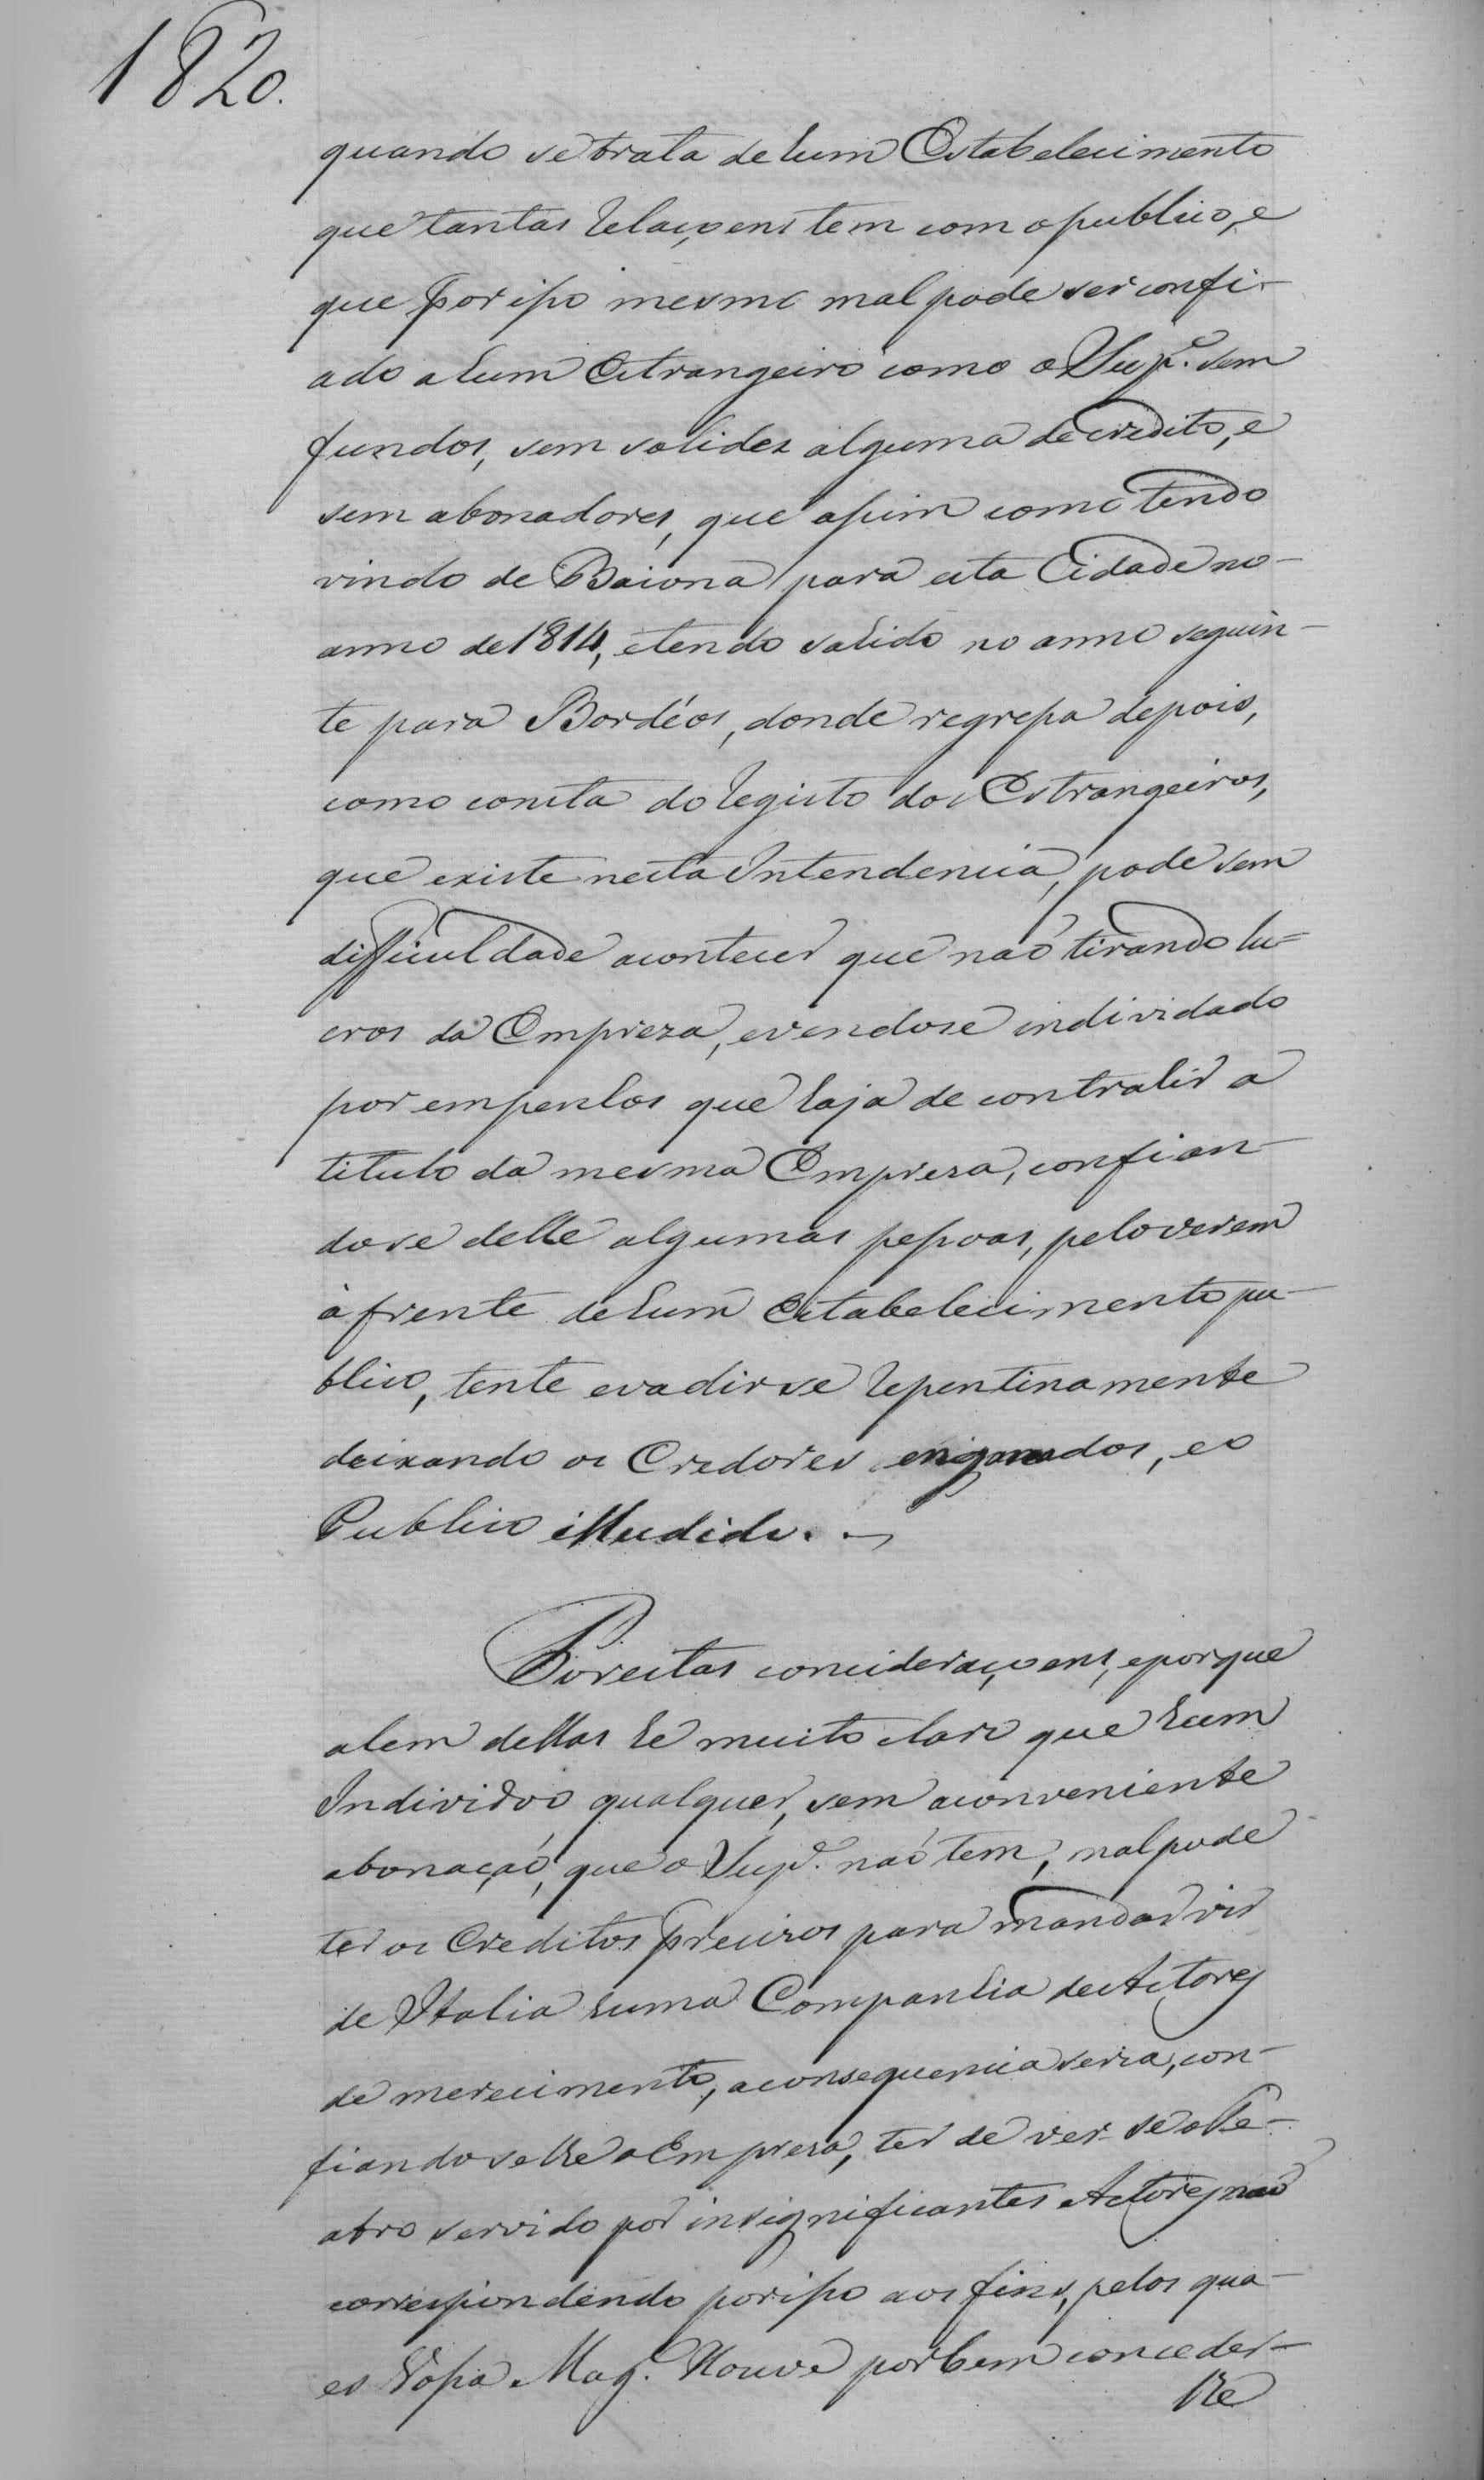 1820.
quando se trata de hum Estabelecimento
que tantas relaçoens tem com o publico, e
que por isso mesmo mal pode ser confi-
ado a hum Estrangeiro como o Sup.e sem
fundos, sem solidez alguma de credito, e
sem abonadores, que assim como tendo
vindo de Baiona para esta Cidade no
anno de 1814, e tendo sahido no anno seguin-
te para Bordéos, donde regressa depois,
como consta do registo dos Estrangeiros,
que existe nesta Intendencia, pode sem
difficuldade acontecer que naõ tirando lu-
cros da Empreza, e vendose individado
por empenhos que haja de contrahir a
titulo da mesma Empreza, confian-
dose delle algumas pessoas, pelo verem
á frente de hum Estabelecimento pu-
blico, tente evadirse repentinamente
deixando os Credores enganados, e o
Publico illudido. -
Por estas consideraçoens, e porque
alem dellas he muito claro que hum
Individuo qualquer, sem a conveniente
abonaçaõ, que o Sup.e naõ tem, mal pode
ter os Creditos precizos para mandar vir
de Italia huma Companhia de Actores
de merecimento, a consequencia seria, con-
fiandoselhe a Empreza, ter de ver-se o The-
atro servido por insignificantes Actores, naõ
correspondendo por isso aos fins, pelos qua-
es Vossa Mag.e Houve por bem conceder-
lhe